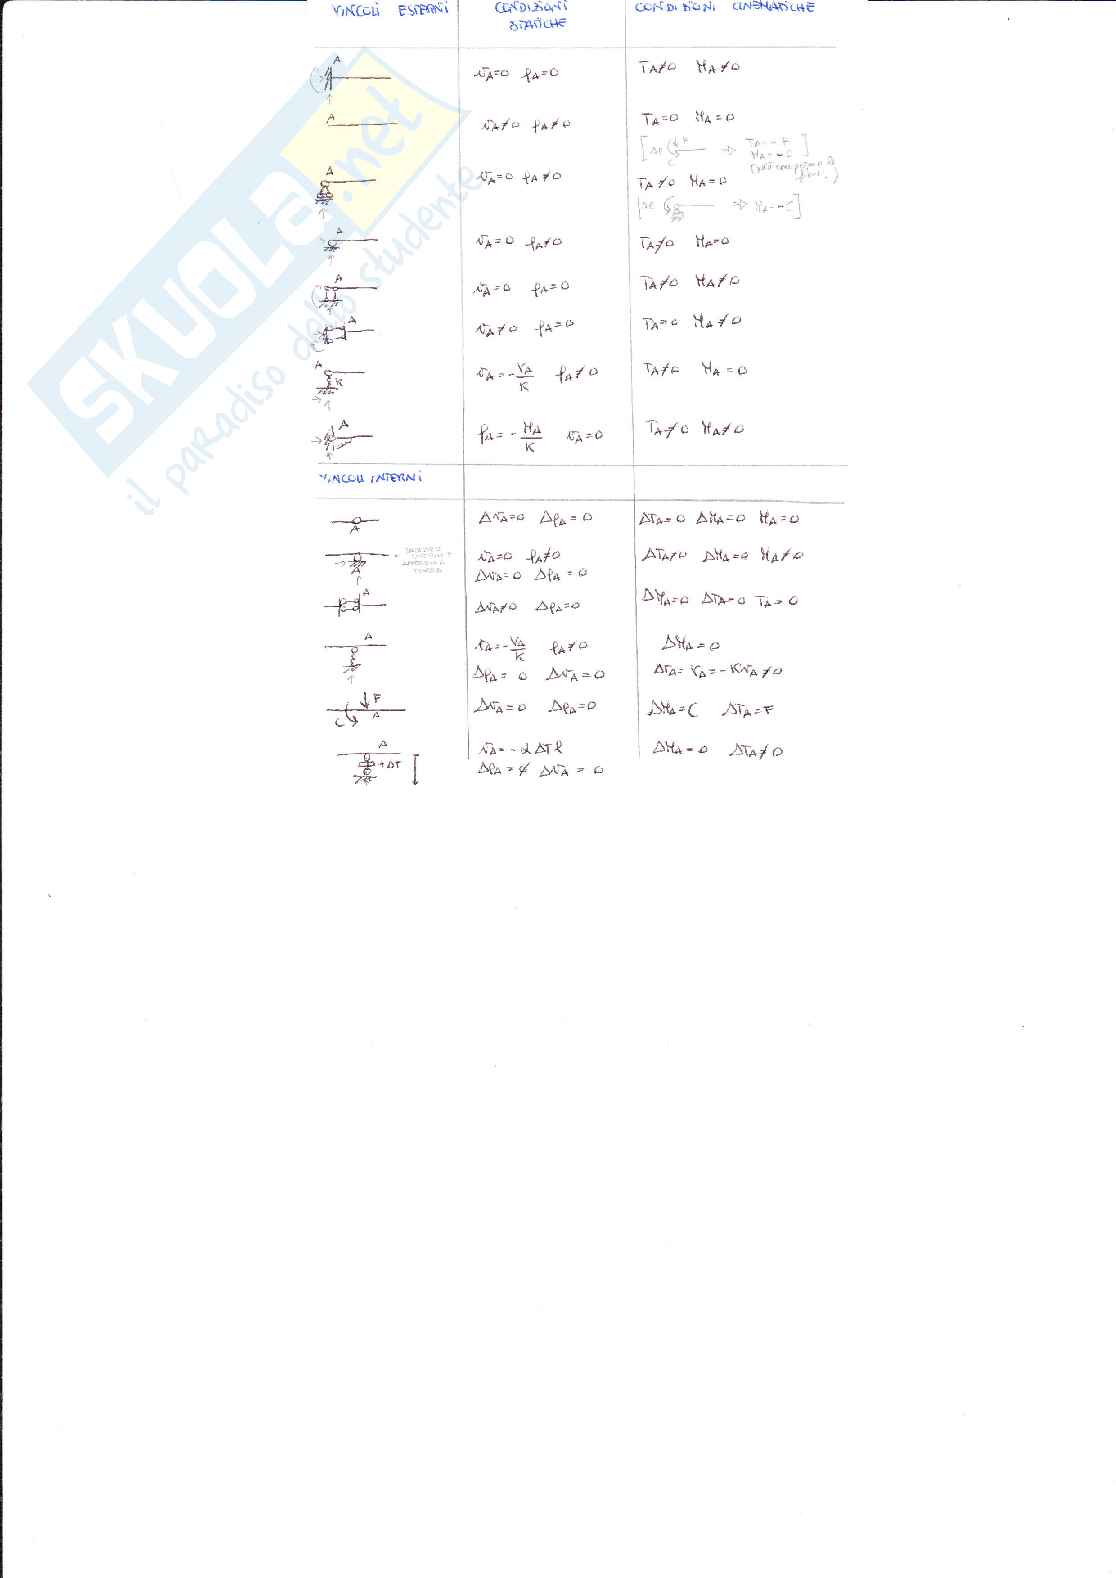 VINCOLI ESTERNI CONDIZIONI STATICHE CONDIZIONI CINEMATICHE
A vA=0 φA=0 TA≠0 MA≠0
A vA≠0 φA≠0 TA=0 MA=0
[se F C ⇒ TA=-F MA=-C]
A vA=0 φA≠0 TA≠0 MA=0
[se ⇒ MA=-C]
A vA=0 φA≠0 TA≠0 MA=0
A vA=0 φA=0 TA≠0 MA≠0
A vA≠0 φA=0 TA=0 MA≠0
A K vA=-VA/K φA≠0 TA≠0 MA=0
A φA=-MA/K vA=0 TA≠0 MA≠0
VINCOLI INTERNI
A ΔvA=0 ΔφA=0 ΔTA=0 ΔMA=0 MA=0
A vA=0 φA≠0 ΔTA≠0 ΔMA=0 MA≠0
ΔvA=0 ΔφA=0
A ΔvA≠0 ΔφA=0 ΔMA=0 ΔTA=0 TA=0
A vA=-VA/K φA≠0 ΔMA=0
ΔφA=0 ΔvA=0 ΔTA=VA=-KvA≠0
F C A ΔvA=0 ΔφA=0 ΔMA=C ΔTA=F
A +ΔT vA=-αΔTl ΔMA=0 ΔTA≠0
ΔvA=0
SKUOLA.net
il paradiso dello studente